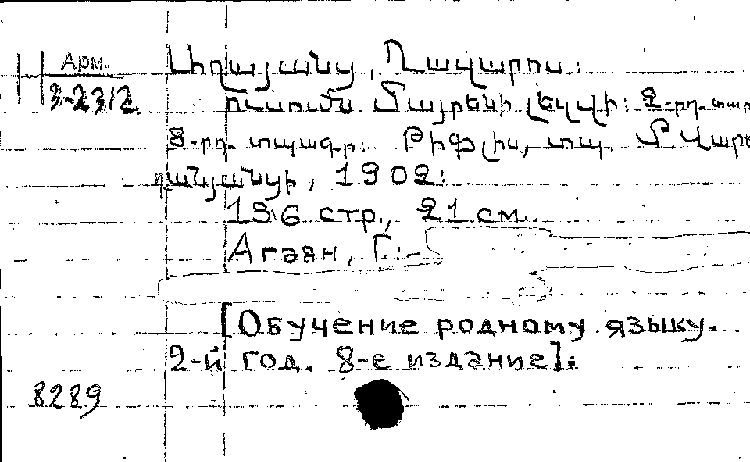 Арм.
3-2312
Աղայանց, Ղազարոս:
Ուսումն Մայրենի լեզվի: 2-րդ տար
8-րդ տպագր: Թիֆլիս, տպ. Մ Վար
դանյանցի, 1902:
156 стр., 21 см.
Агаян, Г.
[Обучение родному языку.
2-й год. 8-е издание]:
8289